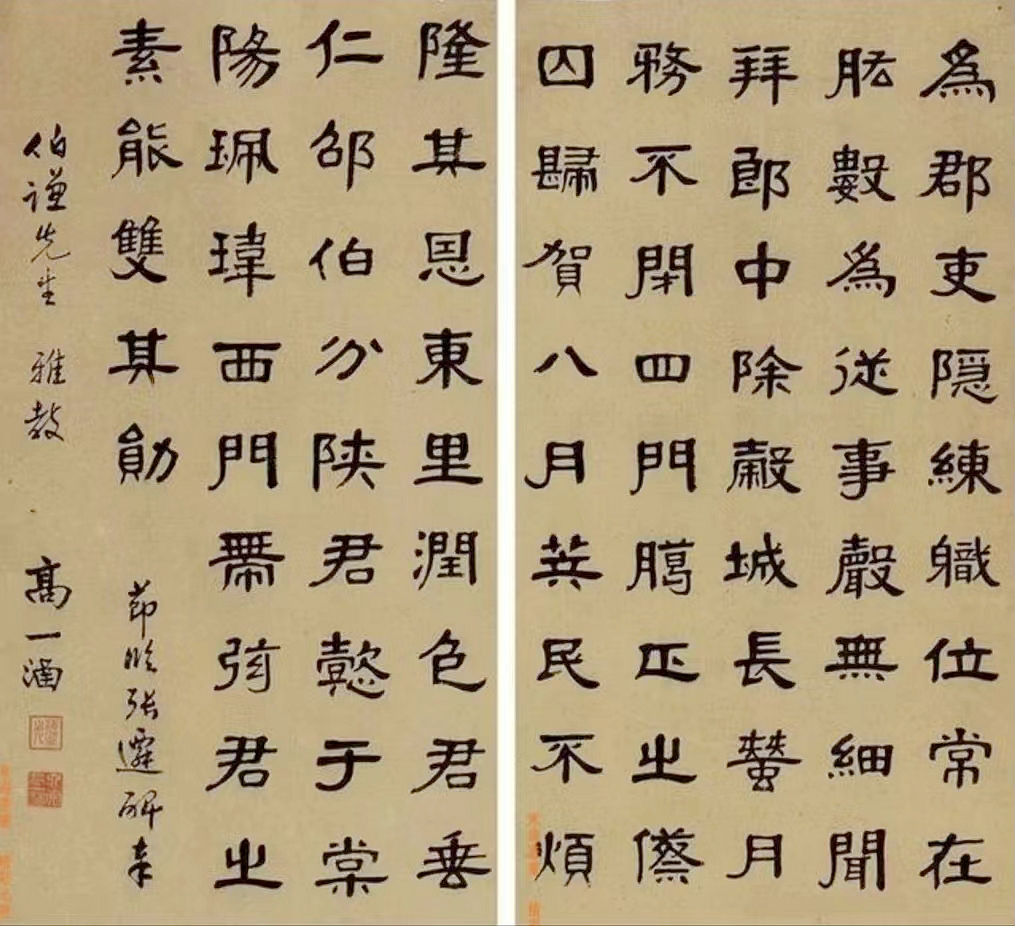 爲郡吏隱練職位常在
肱數爲從事聲無細聞
拜郎中除穀城長蠶月
務不閉四門臈正之僚
囚歸賀八月筭民不煩
隆其恩東里潤色君垂
仁邵伯分陝君懿于棠
陽珮瑋西門帶弦君之
素能雙其勛
節臨張遷碑
伯謙先生 雅教
高一涵